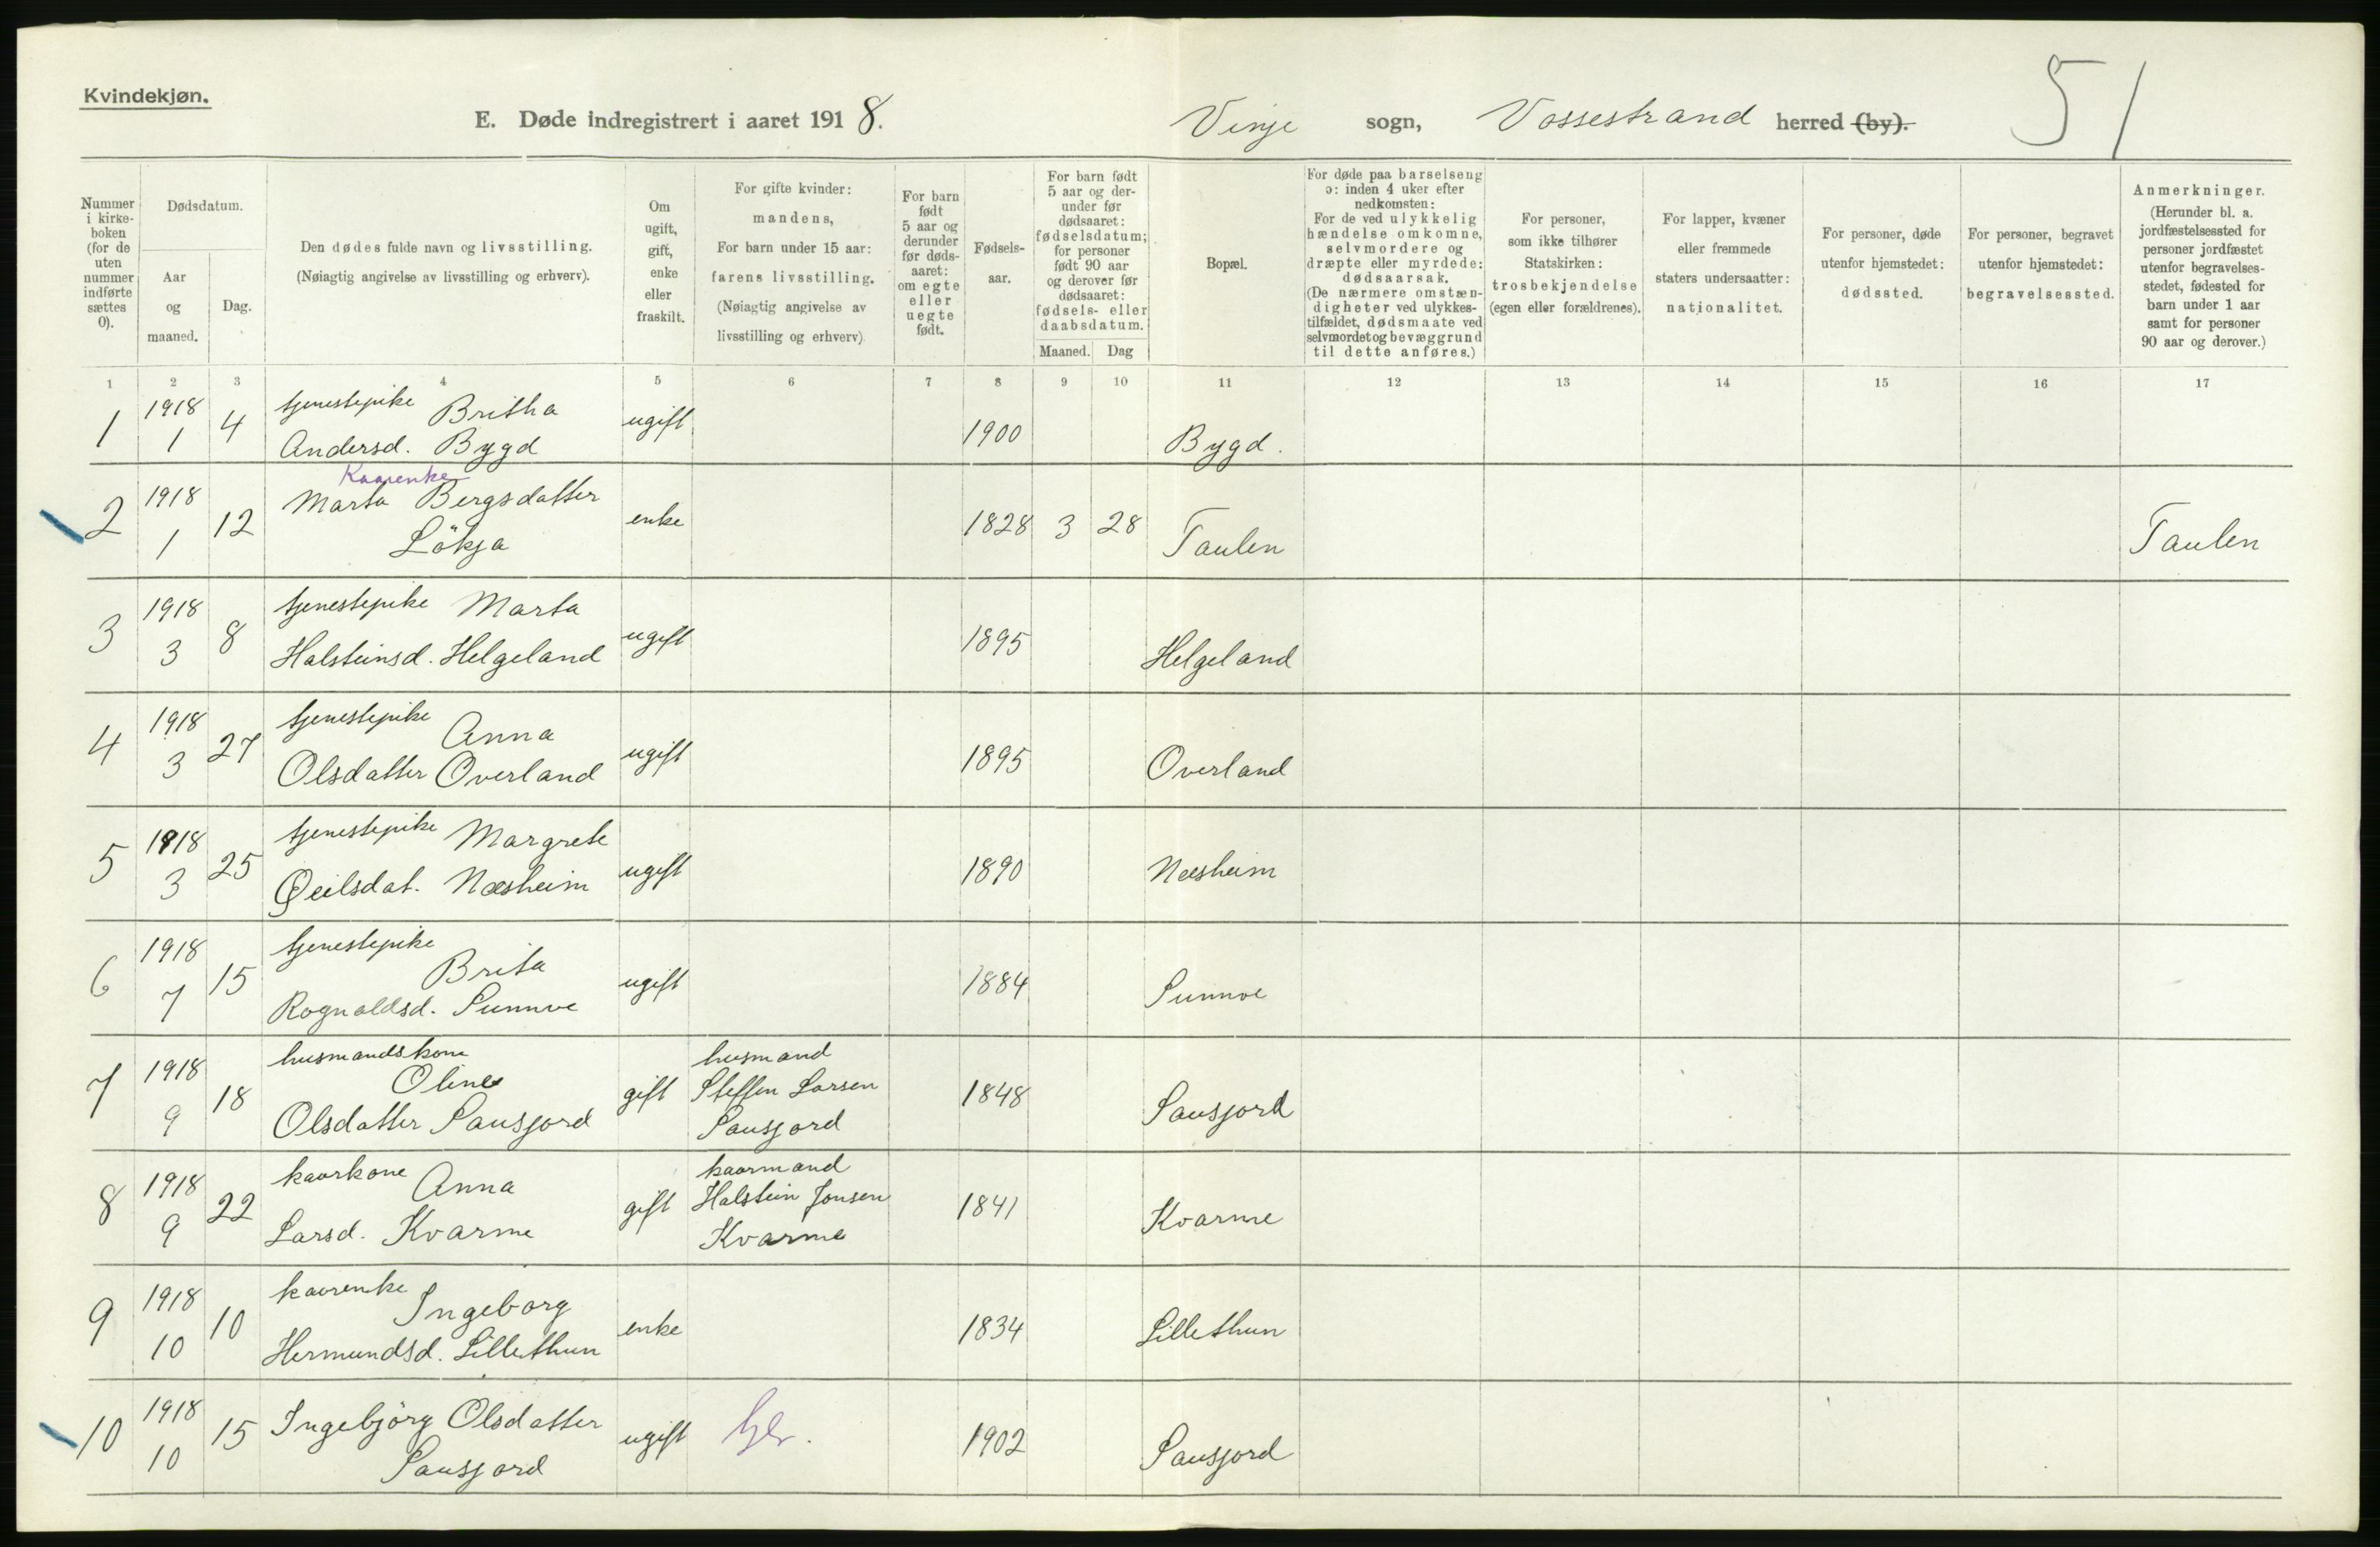 Kvindekjøn.
E. Døde indregistrert i aaret 1918.
Vinje sogn, Vossestrand herred (by).
51
Nummer i kirkeboken (for de uten nummer indførte sættes 0).
Dødsdatum.
Aar og maaned.
Dag.
Den dødes fulde navn og livsstilling.
(Nøiagtig angivelse av livsstilling og erhverv).
Om ugift, gift, enke eller fraskilt.
For gifte kvinder: mandens,
For barn under 15 aar: farens livsstilling.
(Nøiagtig angivelse av livsstilling og erhverv)
For barn født 5 aar og derunder før dødsaaret: om egte eller uegte født.
Fødselsaar.
For barn født 5 aar og derunder før dødsaaret: fødselsdatum; for personer født 90 aar og derover før dødsaaret: fødsels- eller daabsdatum.
Maaned. Dag
Bopæl.
For døde paa barselseng ɔ: inden 4 uker efter nedkomsten:
For de ved ulykkelig hændelse omkomne, selvmordere og dræpte eller myrdede: dødsaarsak.
(De nærmere omstændigheter ved ulykkestilfældet, dødsmaate ved selvmordet og bevæggrund til dette anføres.)
For personer, som ikke tilhører Statskirken: trosbekjendelse (egen eller forældrenes).
For lapper, kvæner eller fremmede staters undersaatter: nationalitet.
For personer, døde utenfor hjemstedet: dødssted.
For personer, begravet utenfor hjemstedet: begravelsessted.
Anmerkninger.
(Herunder bl. a. jordfæstelsessted for personer jordfæstet utenfor begravelsesstedet, fødested for barn under 1 aar samt for personer 90 aar og derover.)
1 2 3 4 5 6 7 8 9 10 11 12 13 14 15 16 17
1 1918 1 4 tjenestepike Britha Andersd. Bygd ugift 1900 Bygd.
2 1918 1 12 Kaarenke Marta Bergsdatter Lökja enke 1828 3 28 Taulen Taulen
3 1918 3 8 tjenestepike Marta Halsteinsd. Helgeland ugift 1895 Helgeland
4 1918 3 27 tjenestepike Anna Olsdatter Overland ugift 1895 Overland
5 1918 3 25 tjenestepike Margrete Næsheim ugift 1890 Næsheim
6 1918 7 15 tjenestepike Brita Rognaldsd. Sunnve ugift 1884 Sunnve
7 1918 9 18 husmandskone Oline Olsdatter Sausjord gift husmand Steffen Larsen Sausjord 1848 Sausjord
8 1918 9 22 kaarkone Anna Larsd. Kvarme gift kaarmand Halstein Jonsen Kvarme 1841 Kvarme
9 1918 10 10 kaarenke Ingeborg Hermundsd. Lillethun enke 1834 Lillethun
10 1918 10 15 Ingebjörg Olsdatter Sausjord ugift 1902 Sausjord